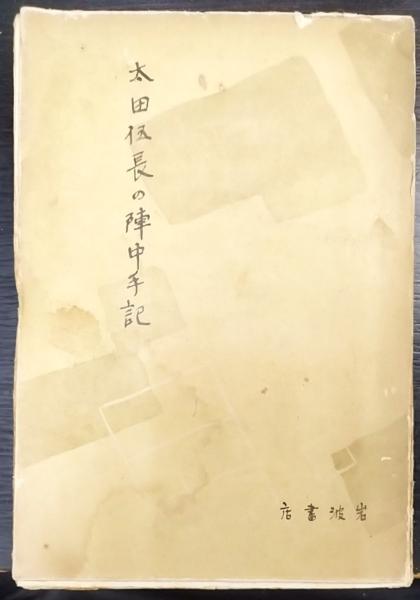 太田伍長の陣中手記
岩波書店